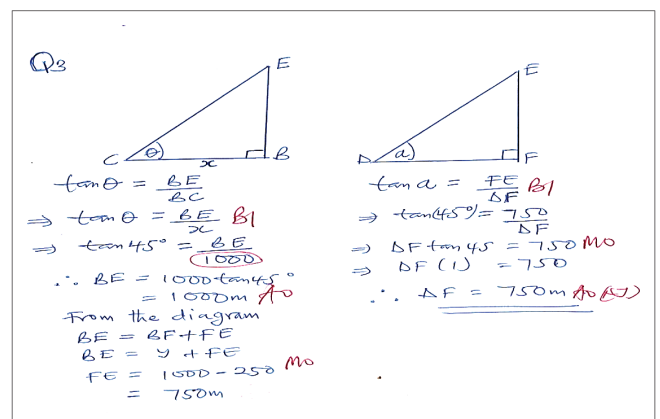 Q3
E
C θ x B
tan θ = BE/BC
⇒ tan θ = BE/x B1
⇒ tan 45° = BE/1000
∴ BE = 1000 tan 45°
= 1000m A0
From the diagram
BE = BF + FE
BE = y + FE
FE = 1000 - 250 M0
= 750m
E
D a F
tan a = FE/DF B1
⇒ tan(45°) = 750/DF
⇒ DF tan 45 = 750 M0
⇒ DF (1) = 750
∴ DF = 750m A0